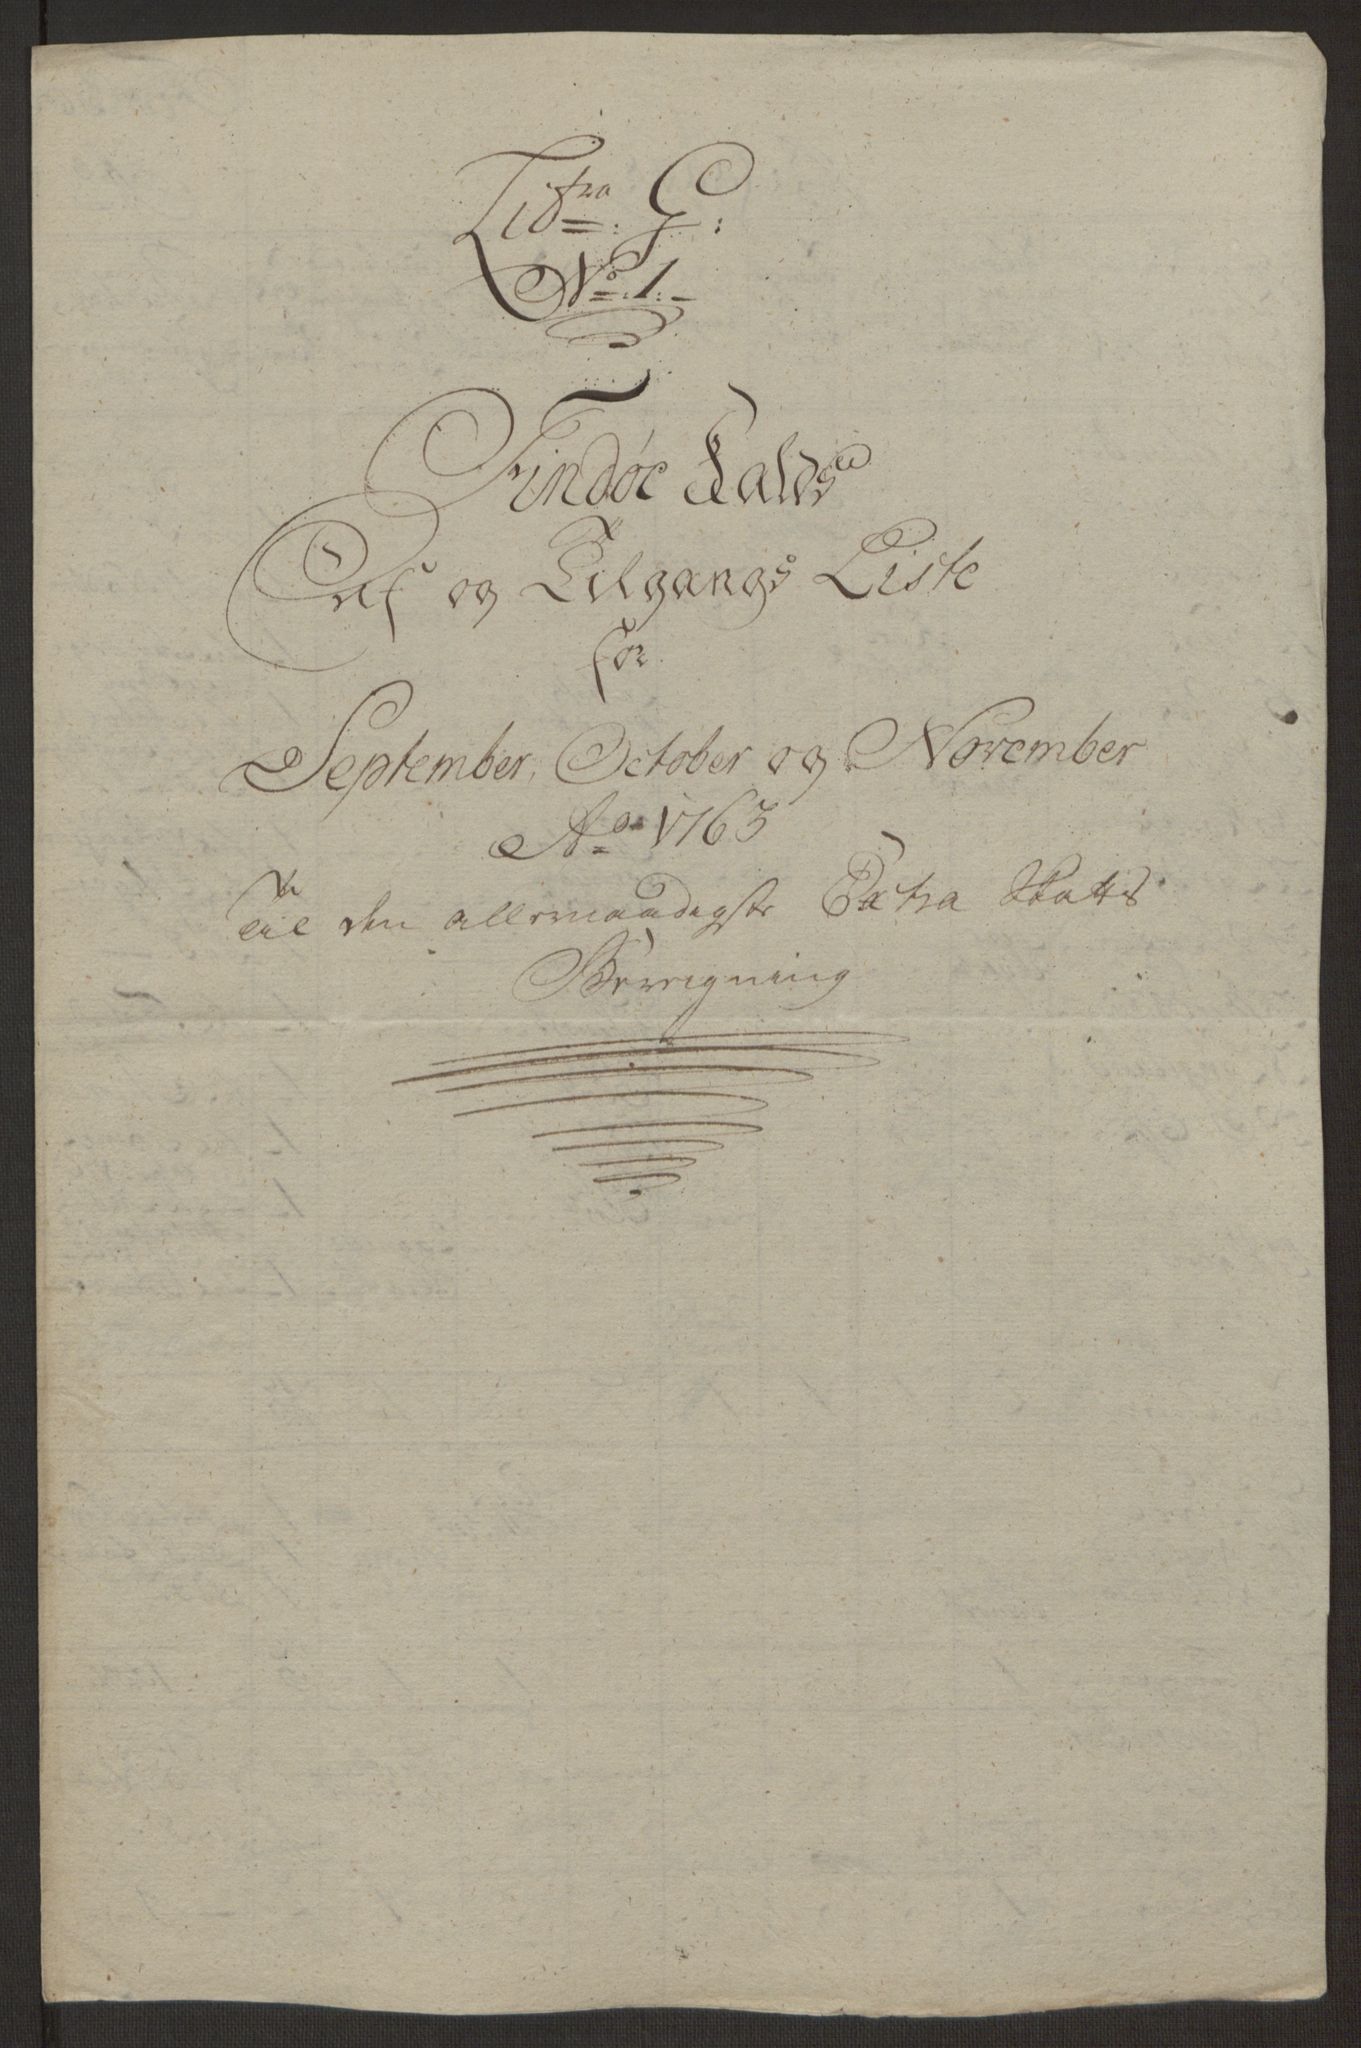 Litra: G:
No: 1.
Findøe Kalds
Af og Tilgangs Liste
for
September, October og November
Ao 1763
Til den allernaadigste Extra Skatts
Beregning